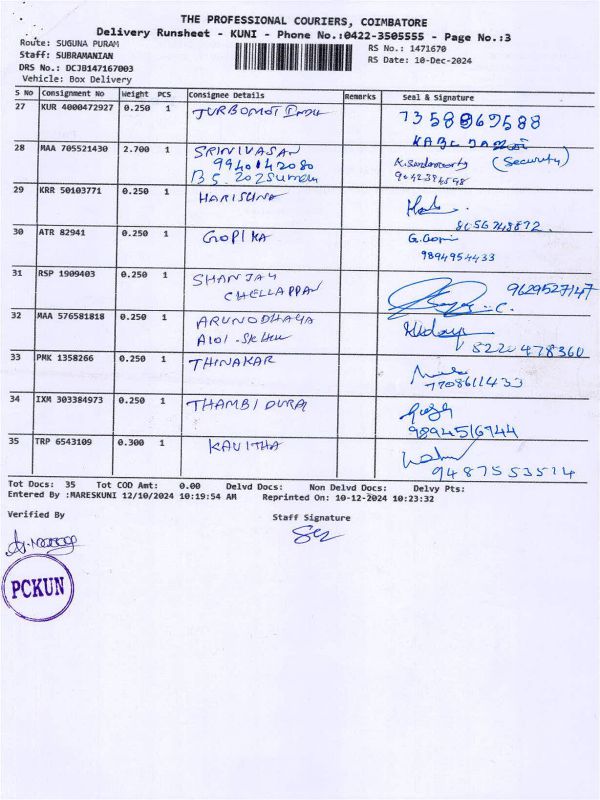 THE PROFESSIONAL COURIERS, COIMBATORE
Delivery Runsheet - KUNI - Phone No.:0422-3505555 - Page No.:3
Route: SUGUNA PURAM
RS No.: 1471670
Staff: SUBRAMANIAN
RS Date: 10-Dec-2024
DRS No.: DCJB147167003
Vehicle: Box Delivery
S No Consignment No Weight PCS Consignee Details Remarks Seal & Signature
27 KUR 4000472927 0.250 1 TURBOMOT INDU 7358869588
28 MAA 705521430 2.700 1 SRINIVASAN (Security)
9940142080
B5. 202 Sumeru 9042394598
29 KRR 50103771 0.250 1 HARISHNA
8056748872.
30 ATR 82941 0.250 1 GOPIKA G. Gopi
9894954433
31 RSP 1909403 0.250 1 SHANJAY
CHELLAPPAN 9629527147
32 MAA 576581818 0.250 1 ARUNODHAYA
A101 8220478360
33 PMK 1358266 0.250 1 THINAKAR
7708611433
34 IXM 303384973 0.250 1 THAMBI DURAI
9894516944
35 TRP 6543109 0.300 1 KAVITHA
9487553514
Tot Docs: 35 Tot COD Amt: 0.00 Delvd Docs: Non Delvd Docs: Delvy Pts:
Entered By :MARESKUNI 12/10/2024 10:19:54 AM Reprinted On: 10-12-2024 10:23:32
Verified By
Staff Signature
PCKUN